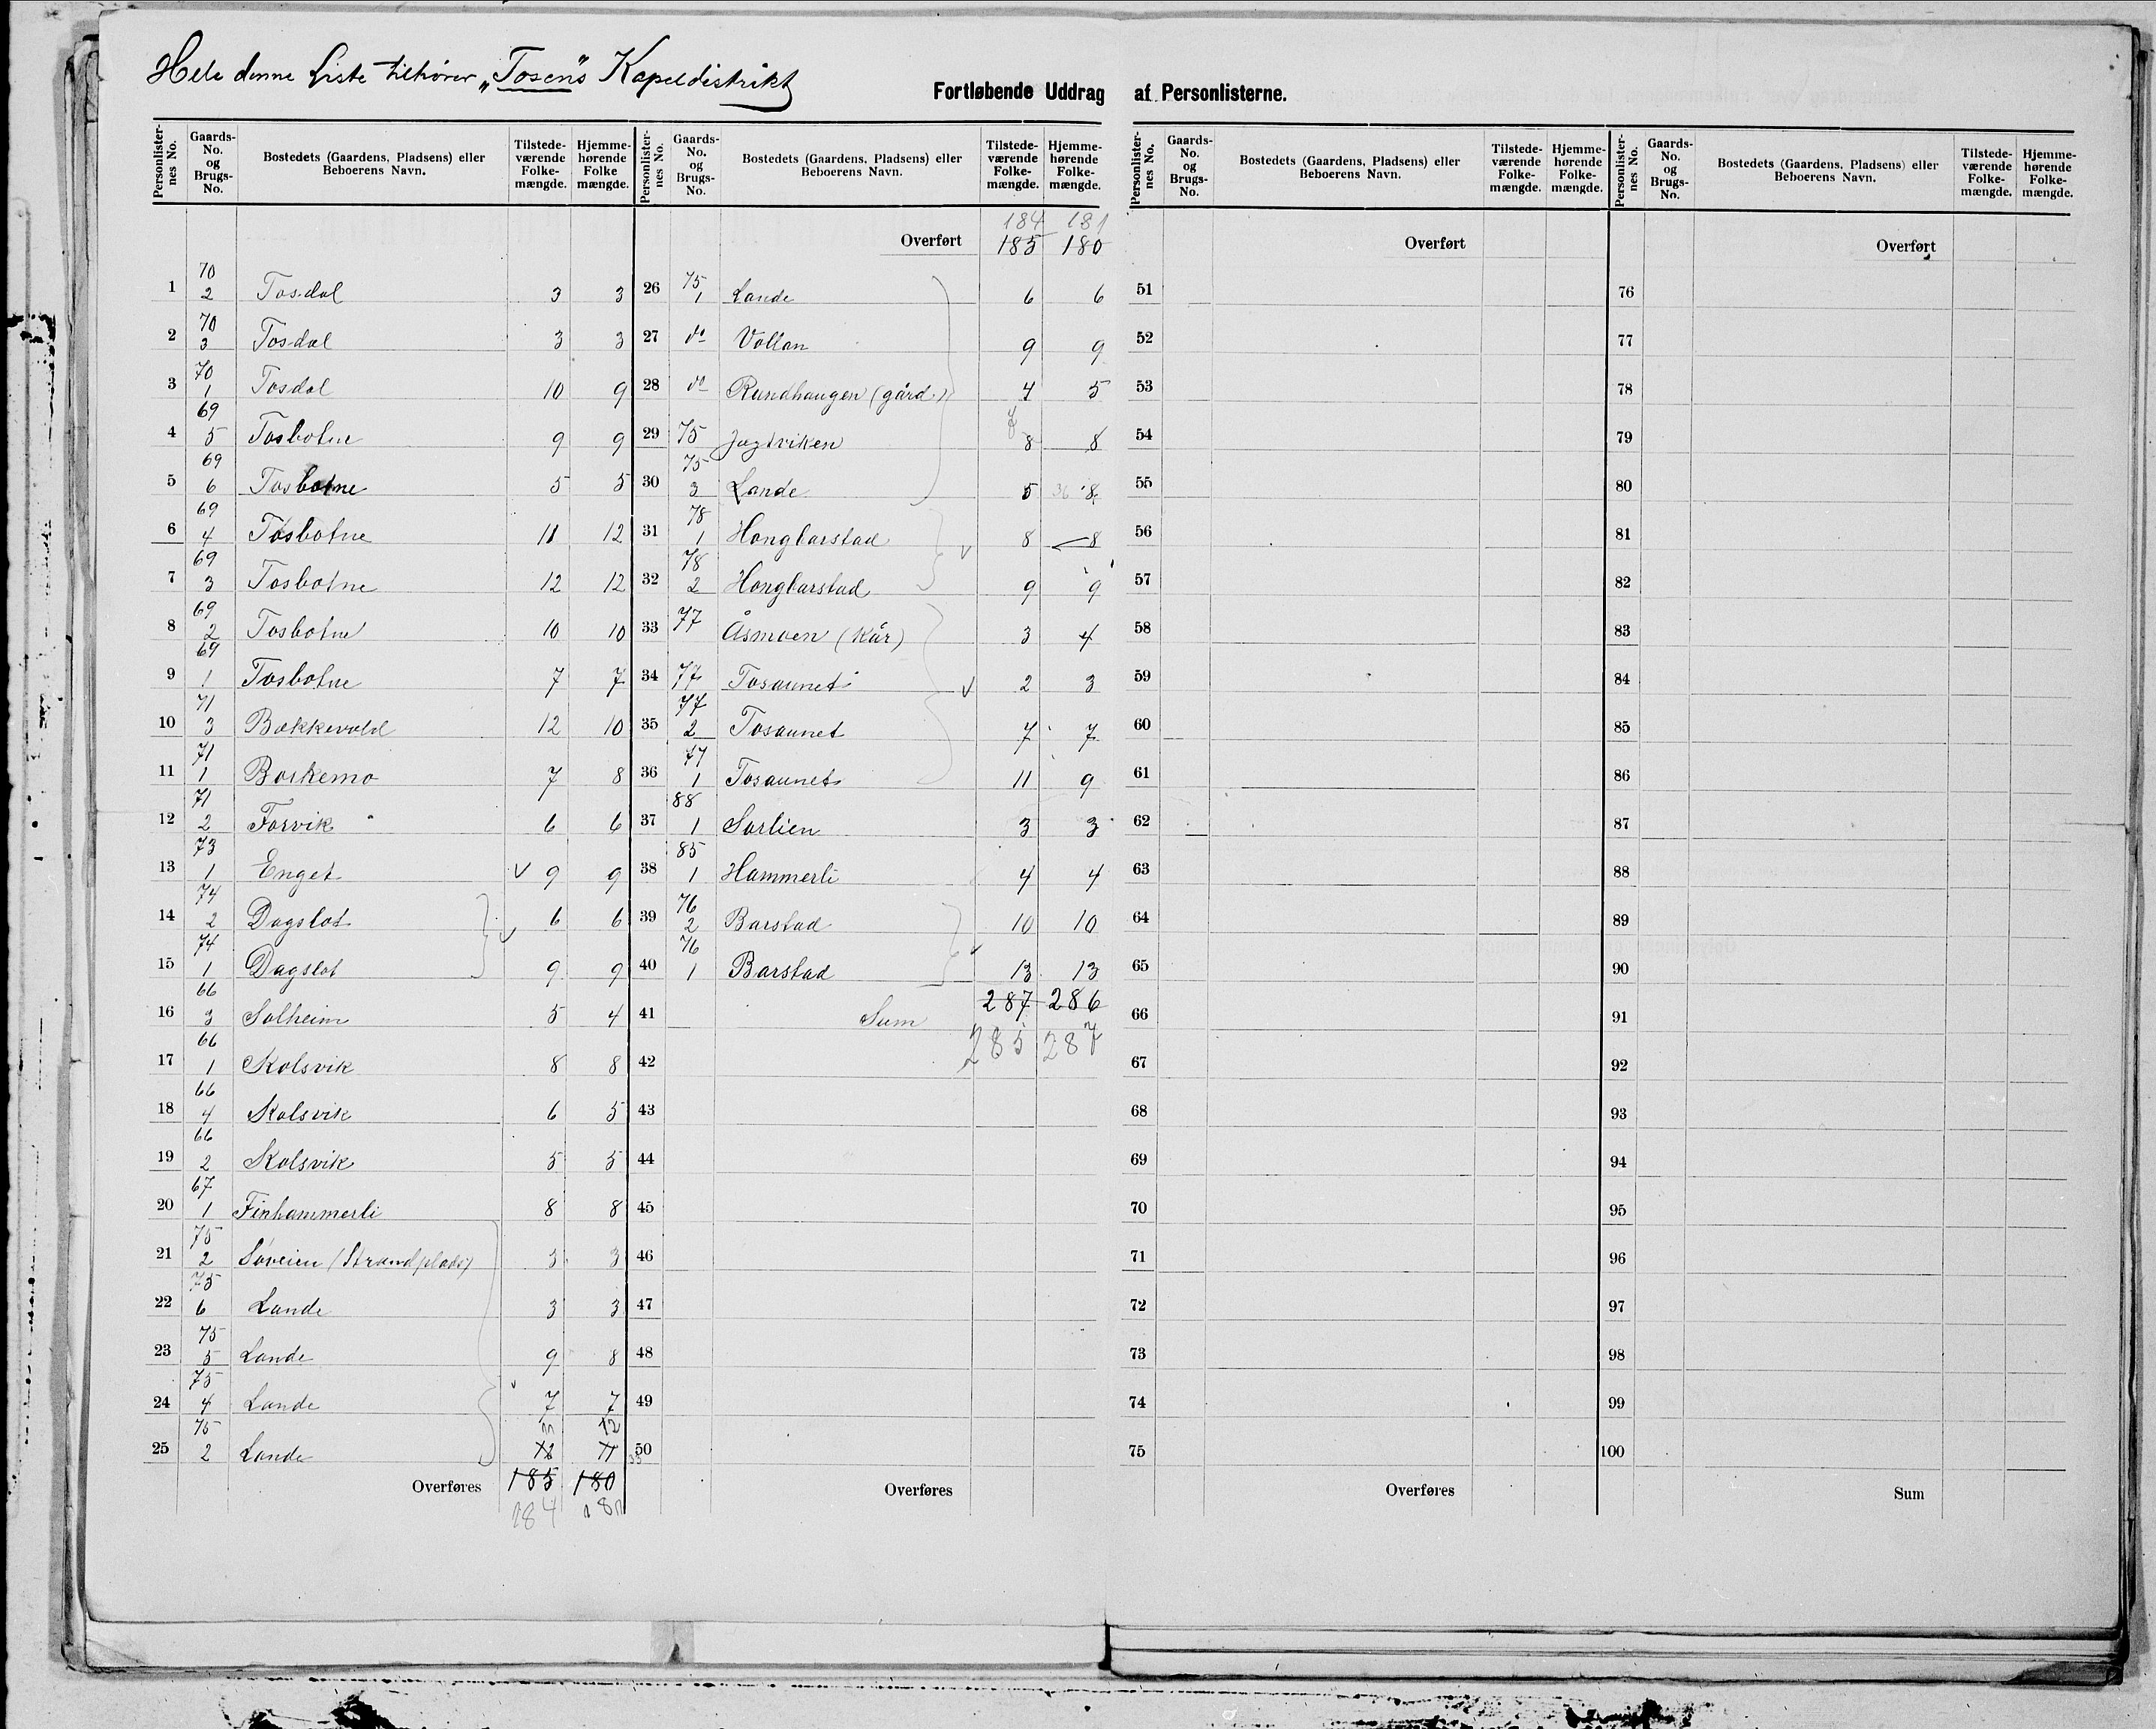 Hele denne Liste tilhører „Tosens" Kapeldistrikt
Fortløbende Uddrag af Personlisterne.
Personlister-nes No. Gaards-No. og Brugs-No. Bostedets (Gaardens, Pladsens) eller Beboerens Navn. Tilstede-værende Folke-mængde. Hjemme-hørende Folke mængde.
Personlister-nes No. Gaards-No. og Brugs-No. Bostedets (Gaardens, Pladsens) eller Beboerens Navn. Tilstede-værende Folke-mængde. Hjemme-hørende Folke-mængde.
Personlister-nes No. Gaards-No. og Brugs-No. Bostedets (Gaardens, Pladsens) eller Beboerens Navn. Tilstede-værende Folke-mængde. Hjemme-hørende Folke-mængde.
Personlister-nes No. Gaards-No. og Brugs-No. Bostedets (Gaardens, Pladsens) eller Beboerens Navn. Tilstede-værende Folke-mængde. Hjemme-hørende Folke-mængde.
1 70 2 Tosdal 3 3
2 70 3 Tosdal 3 3
3 70 1 Tosdal 10 9
4 69 5 Tosbotne 9 9
5 69 6 Tosbotne 5 5
6 69 4 Tosbotne 11 12
7 69 3 Tosbotne 12 12
8 69 2 Tosbotne 10 10
9 69 1 Tosbotne 7 7
10 71 3 Bakkevold 12 10
11 71 1 Borkemo 7 8
12 71 2 Forvik 6 6
13 73 1 Enget 9 9
14 74 2 Dagslot 6 6
15 74 1 Dagslot 9 9
16 66 3 Solheim 5 4
17 66 1 Kolsvik 8 8
18 66 4 Kolsvik 6 5
19 66 2 Kolsvik 5 5
20 67 1 Finhammerli 8 8
21 75 2 Søveien (Strandplads) 3 3
22 75 6 Lande 3 3
23 75 5 Lande 9 8
24 75 4 Lande 7 7
25 75 2 Lande 12 11
Overføres 185 180
184
184 181
Overført 185 180
26 75 1 Lande 6 6
27 do Vollan 9 9
28 do Rundhaugen (gård.) 4 5
7
29 75 Jogtviken 8 8
30 75 3 Lande 5 36 8
31 78 1 Hongbarstad 8 8
32 78 2 Hongbarstad 9 9
33 77 Åsmoen (Kår) 3 4
34 77 Tosaunet 2 3
35 77 2 Tosaunet 7 7
36 77 1 Tosaunet 11 9
37 88 1 Sorlien 3 3
38 85 1 Hammerli 4 4
39 76 2 Barstad 10 10
40 76 1 Barstad 13 13
41 Sum 287 286
285 287
42
43
44
45
46
47
48
49
50
Overføres
Overført
51
52
53
54
55
56
57
58
59
60
61
62
63
64
65
66
67
68
69
70
71
72
73
74
75
Overføres
Overført
76
77
78
79
80
81
82
83
84
85
86
87
88
89
90
91
92
93
94
95
96
97
98
99
100
Sum